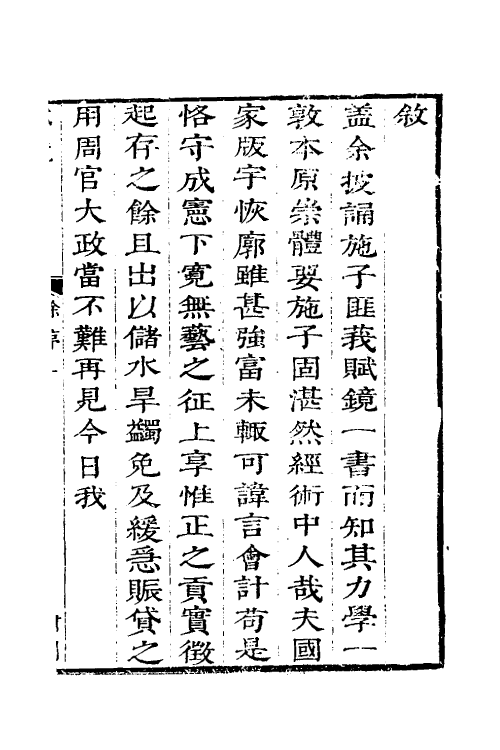 敘
葢余披誦施子匪莪賦鏡一書而知其力學一
敦本原崇體要施子固湛然經術中人哉夫國
家版宇恢廓雖甚強富未輙可諱言會計苟是
恪守成憲下寛無藝之征上享惟正之貢實徵
起存之餘且出以儲水旱蠲免及緩急賑貸之
用周官大政當不難再見今日我